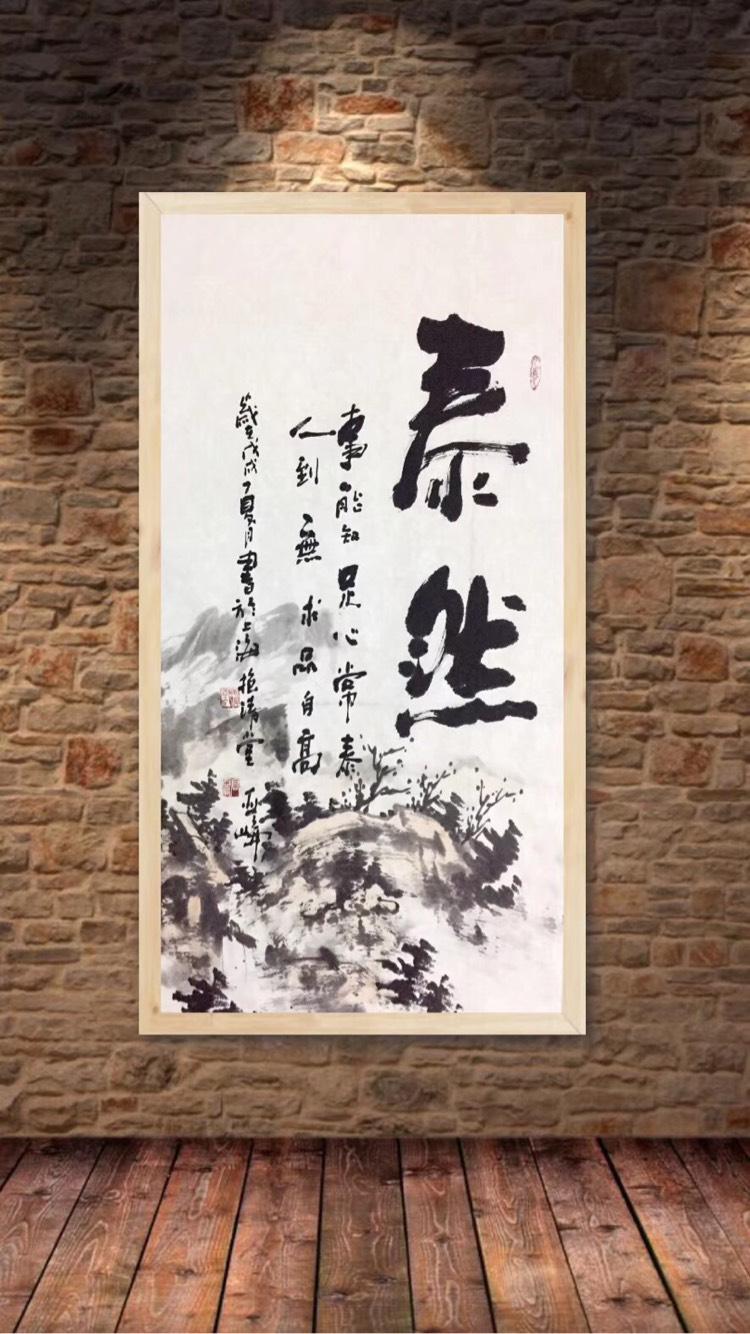 泰然
事能知足心常泰
人到無求品自高
歲在戊戌夏月書於上海抱清堂